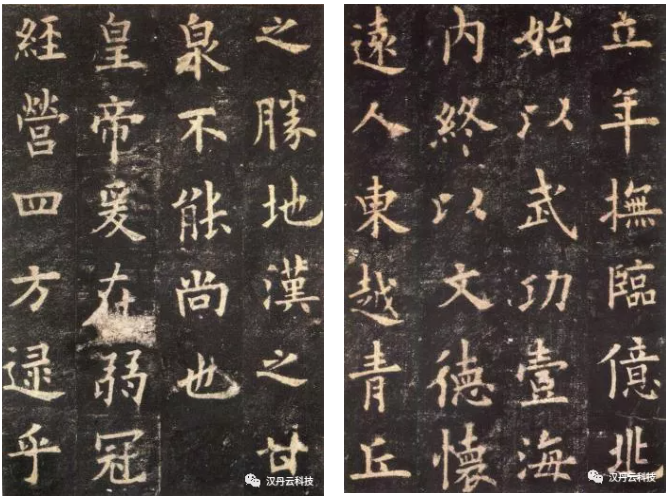 之勝地漢之甘
泉不能尚也
皇帝爰在弱冠
經營四方逮乎
汉丹云科技
立年撫臨億兆
始以武功壹海
内終以文德懷
遠人東越青丘
汉丹云科技